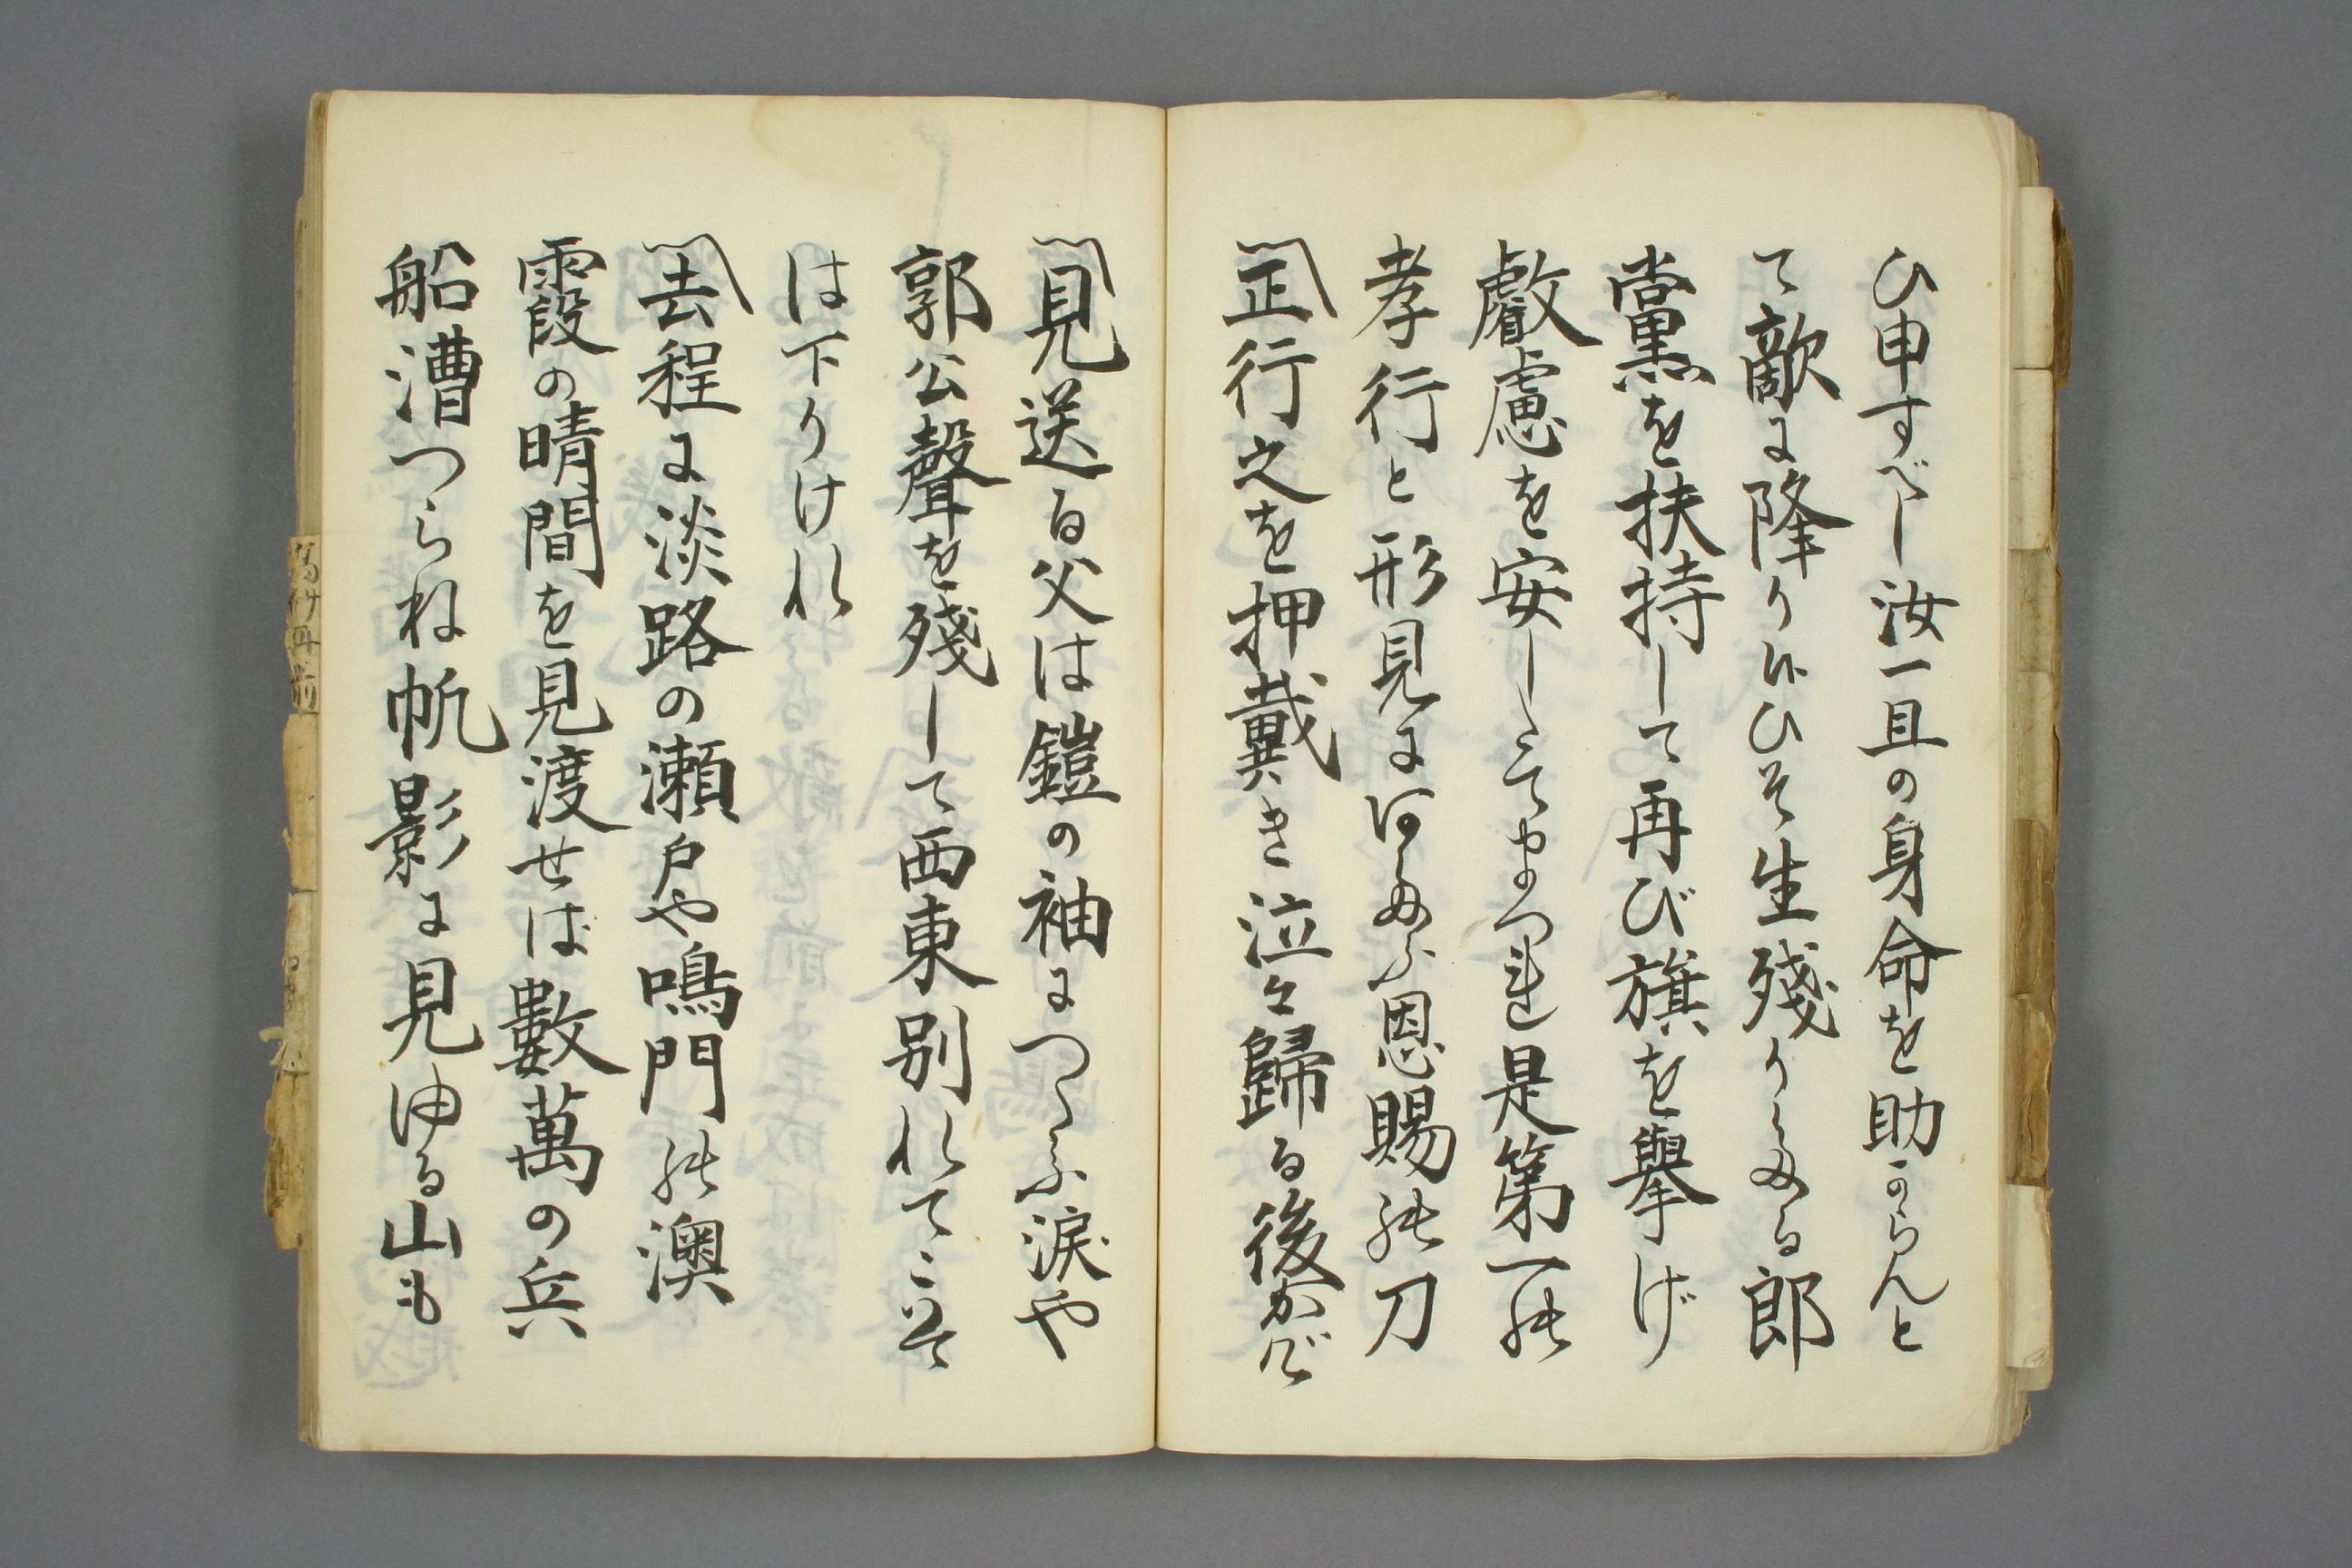 ひ申すべし汝一旦の身命を助からんと
て敵に降り候ひそ生残りたる郎
黨を扶持して再び旗を擧げ
叡慮を安したてまつれ是第一の
孝行と形見にあたふ恩賜の刀
正行之を押戴き泣々歸る後かげ
見送る父は鎧の袖につたふ涙や
郭公聲を殘して西東別れてこそ
は下りけれ
去程に淡路の瀬戸や鳴門の澳
霞の晴間を見渡せば數萬の兵
船漕つらね帆影に見ゆる山も